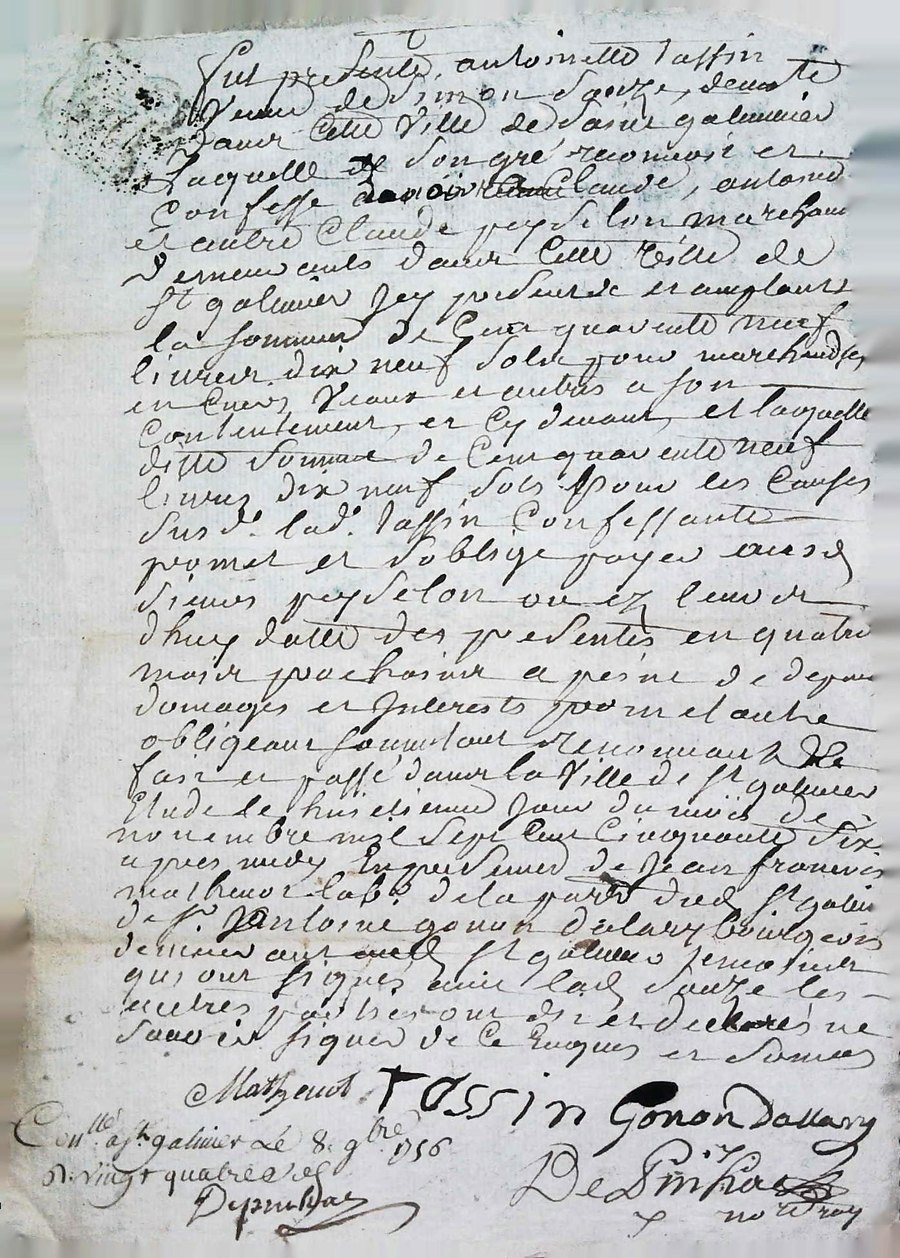 Fut presente, antoinette tassin
veuve de Simon Sauze, demte
dans Cette Ville de Saint galmier
Laquelle de Son gré reconnoit et
Confesse devoir Claude, antoine
et autre Claude peyselon marchans
demeurants dans Cette Ville de
St galmier Jcy presents et acceptants
la somme de Cent quarente neuf
livres dix neuf Sols pour marchandises
en Cuirs Veaux et autres a Son
Contentement, et Cy devant, et laquelle
ditte Somme de Cent quarente neuf
livres dix neuf Sols pour les Causes
Susd. lad. tassin Confessante
promet et S'oblige payer ausd
Sieurs peyselon ou ez leurs
d'huy datte des presentes en quatre
mois prochains a peine de depens
domages et Jnterests promet
obligeant renonceant
fait et passé dans la Ville de St galmier
Etude le huitieme Jour du mois de
novembre mil Sept Cent Cinquante Six
apres midy En presence de Jean francois
mathevot de la parr dud St galmier
de Sr Antoine gonon dallary bourgeois
demeurant aud St galmier temoins
qui ont signés avec lad Sauze les
autres parties ont dit et declarés ne
Savoir signer de Ce Enquis et Sommés
Mathevot tassin Gonon Dallary
Conllé a St galmier Le 8. 9bre 1756
R. vingt quatre s
DePrinhac
no re roy